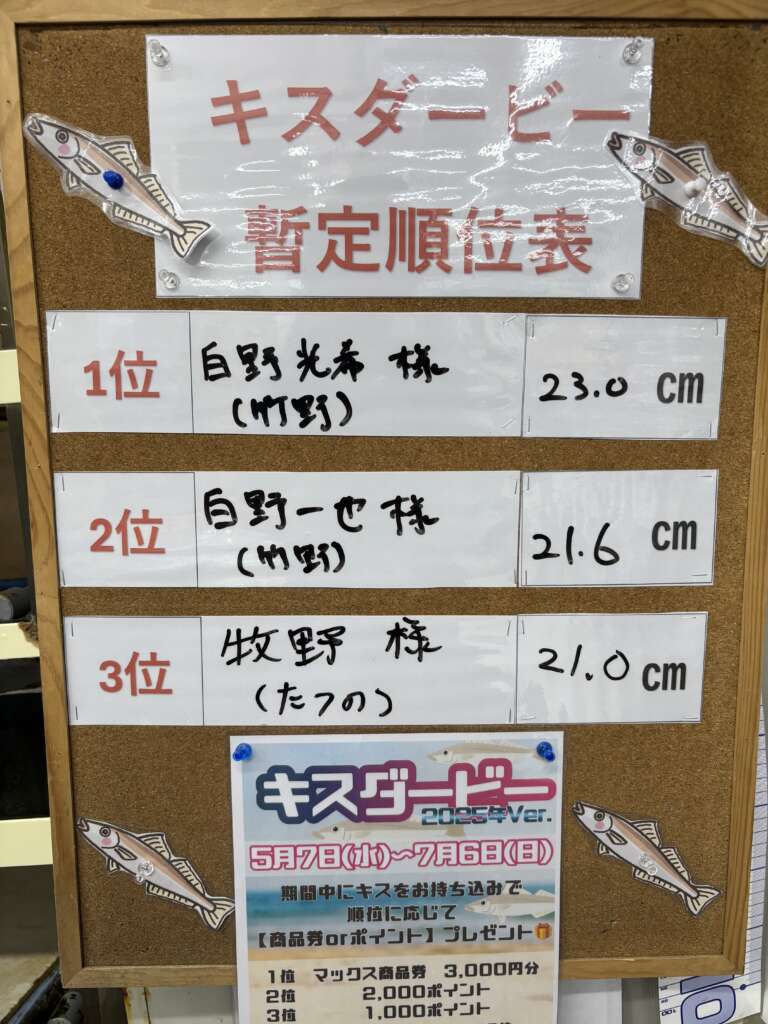 キスダービー
暫定順位表
1位 白野光希 様 23.0 cm
(竹野)
2位 白野一也 様 21.6 cm
(竹野)
3位 牧野 様 21.0 cm
(たつの)
キスダービー
2025年Ver.
5月7日(水)〜7月6日(日)
期間中にキスをお持ち込みで
順位に応じて
【商品券orポイント】プレゼント🎁
1位 マックス商品券 3,000円分
2位 2,000ポイント
3位 1,000ポイント